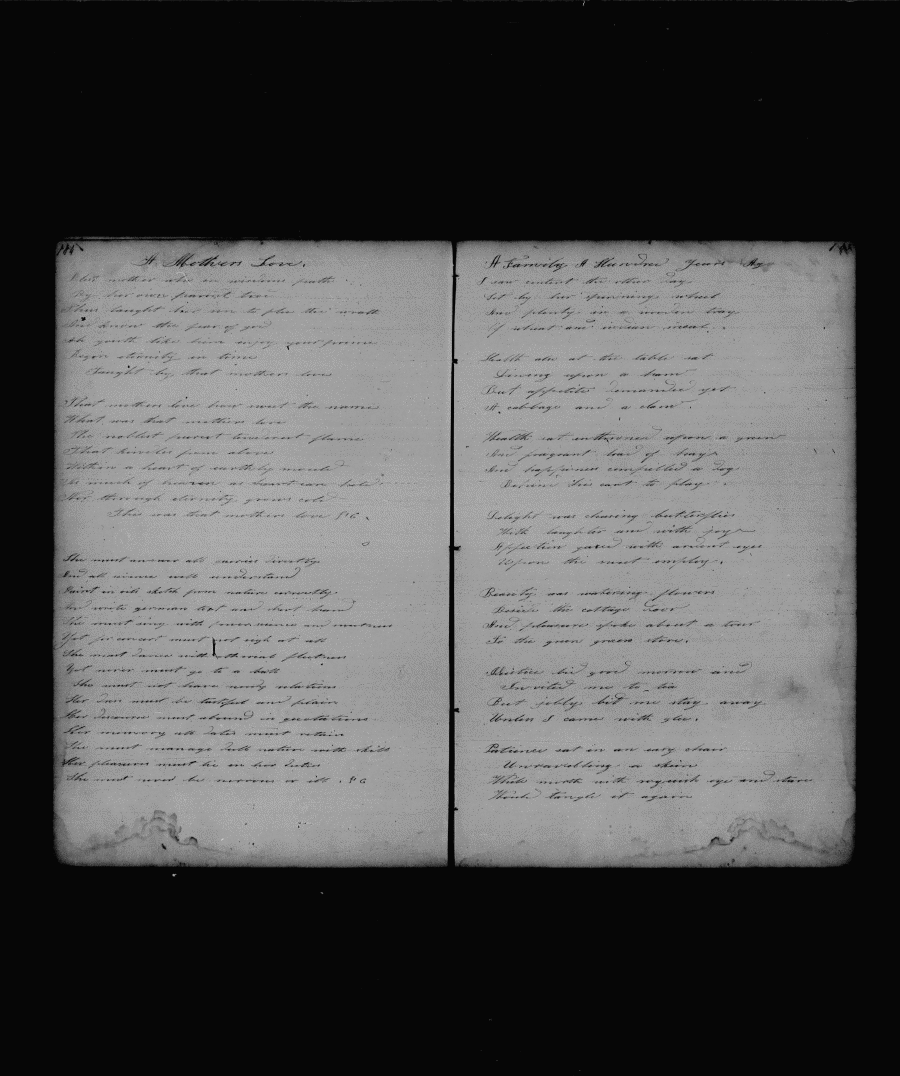 A Mothers Love.
mother who in path
By her own parent
taught
And know the fear of god
youth like
eternity in time
Taught by that mothers love
That mothers love how sweet the name
What was that mothers love
The noblest purest flame
That kindles from above
Within a heart of earthly mould
As much of heaven as heart can hold
Nor through eternity grows cold
This was that mothers love
She must answer all queries directly
And all science well understand
Paint in oils sketch from nature correctly
And write german text and short hand
She must sing with power science and sweetness
Yet for concert must not sigh at all
She must dance with etherial fleetness
Yet never must go to a ball
She must not have needy relations
Her dress must be tasteful and plain
Her discourse must abound in quotations
Her memory all dates must retain
She must manage dull nation with skill
Her pleasures must lie in her duties
She must never be nervous or ill.
A Family A Hundred Years Ag
I saw content the other day
Set by her spinning wheel
And plenty in a wooden tray
Of wheat and indian meal.
Health also at the table sat
Dining upon a ham
But appetite demanded yet
A cabbage and a clam.
Health sat enthroned upon a green
And fragrant load of hay
And happiness compelled a dog
Behind his cart to play.
Delight was chasing butterflies
With laughter and with joy
Affection gazed with ardent eyes
Upon the sweet employ.
Beauty was watering flowers
Beside the cottage door
And pleasure spoke about a tour
To the green store.
bid good morrow and
Invited me to tea
But jolly bid me stay away
Unless I came with glee.
Patience sat in an easy chair
Unravelling a skein
While mirth with roguish eye and
Would tangle it again